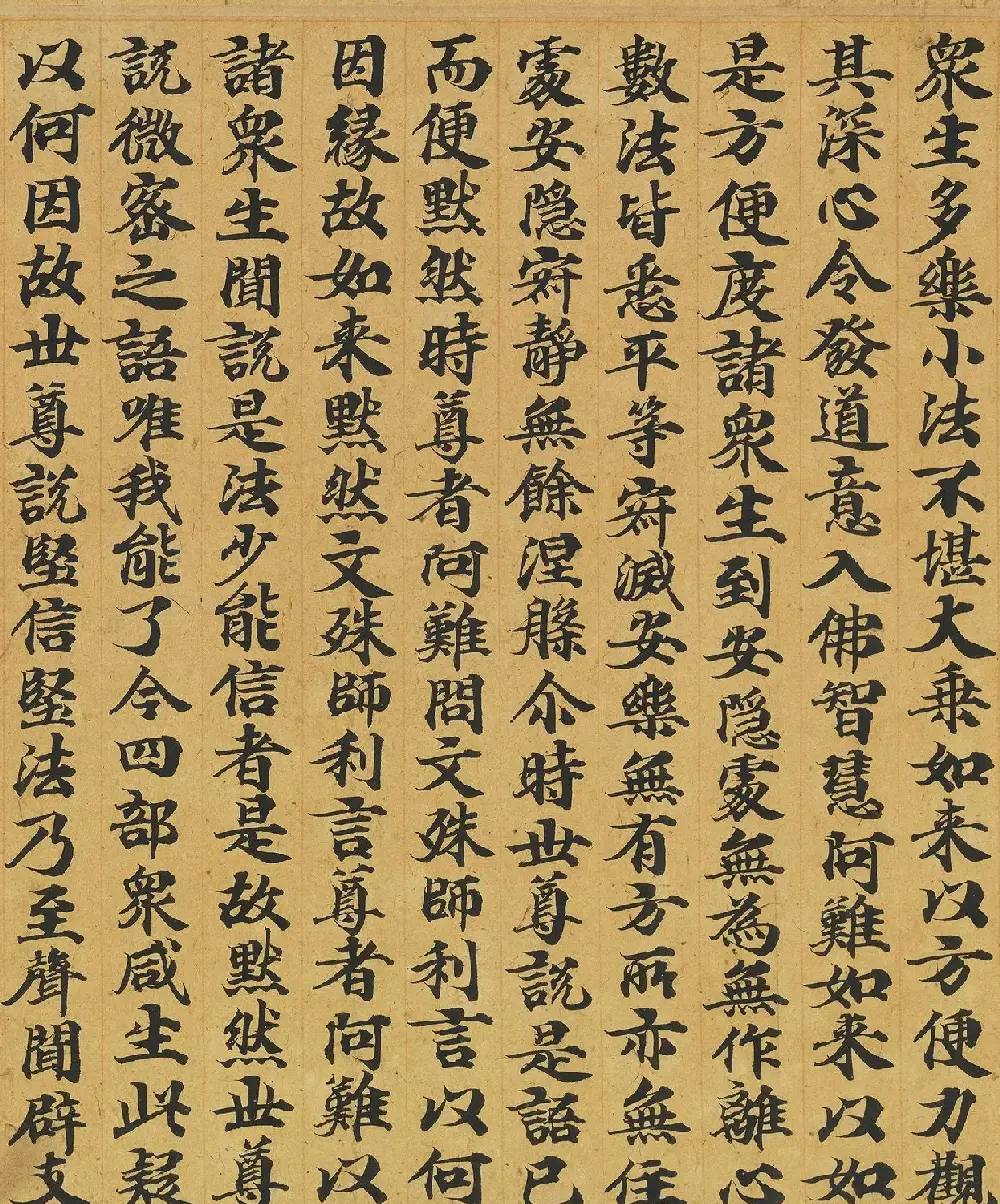 衆生多樂小法不堪大乗如来以方便力觀
其深心令發道意入佛智慧阿難如来以如
是方便度諸衆生到安隠處無為無作離心
數法皆悉平等寂滅安樂無有方所亦無住
處安隠寂靜無餘涅槃尒時世尊說是語已
而便默然時尊者阿難問文殊師利言以何
因縁故如来默然文殊師利言尊者阿難以
諸衆生聞說是法少能信者是故默然世尊
説微密之語唯我能了今四部衆咸生此疑
以何因故世尊說堅信堅法乃至聲聞辟支